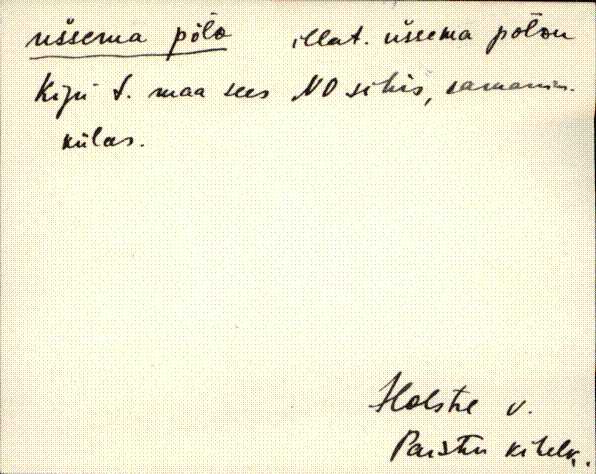 üssema põld illat. üssema põldu
Kipi t. maa sees NO sihis, samanim.
külas.
Holstre v.
Paistu kihelk.